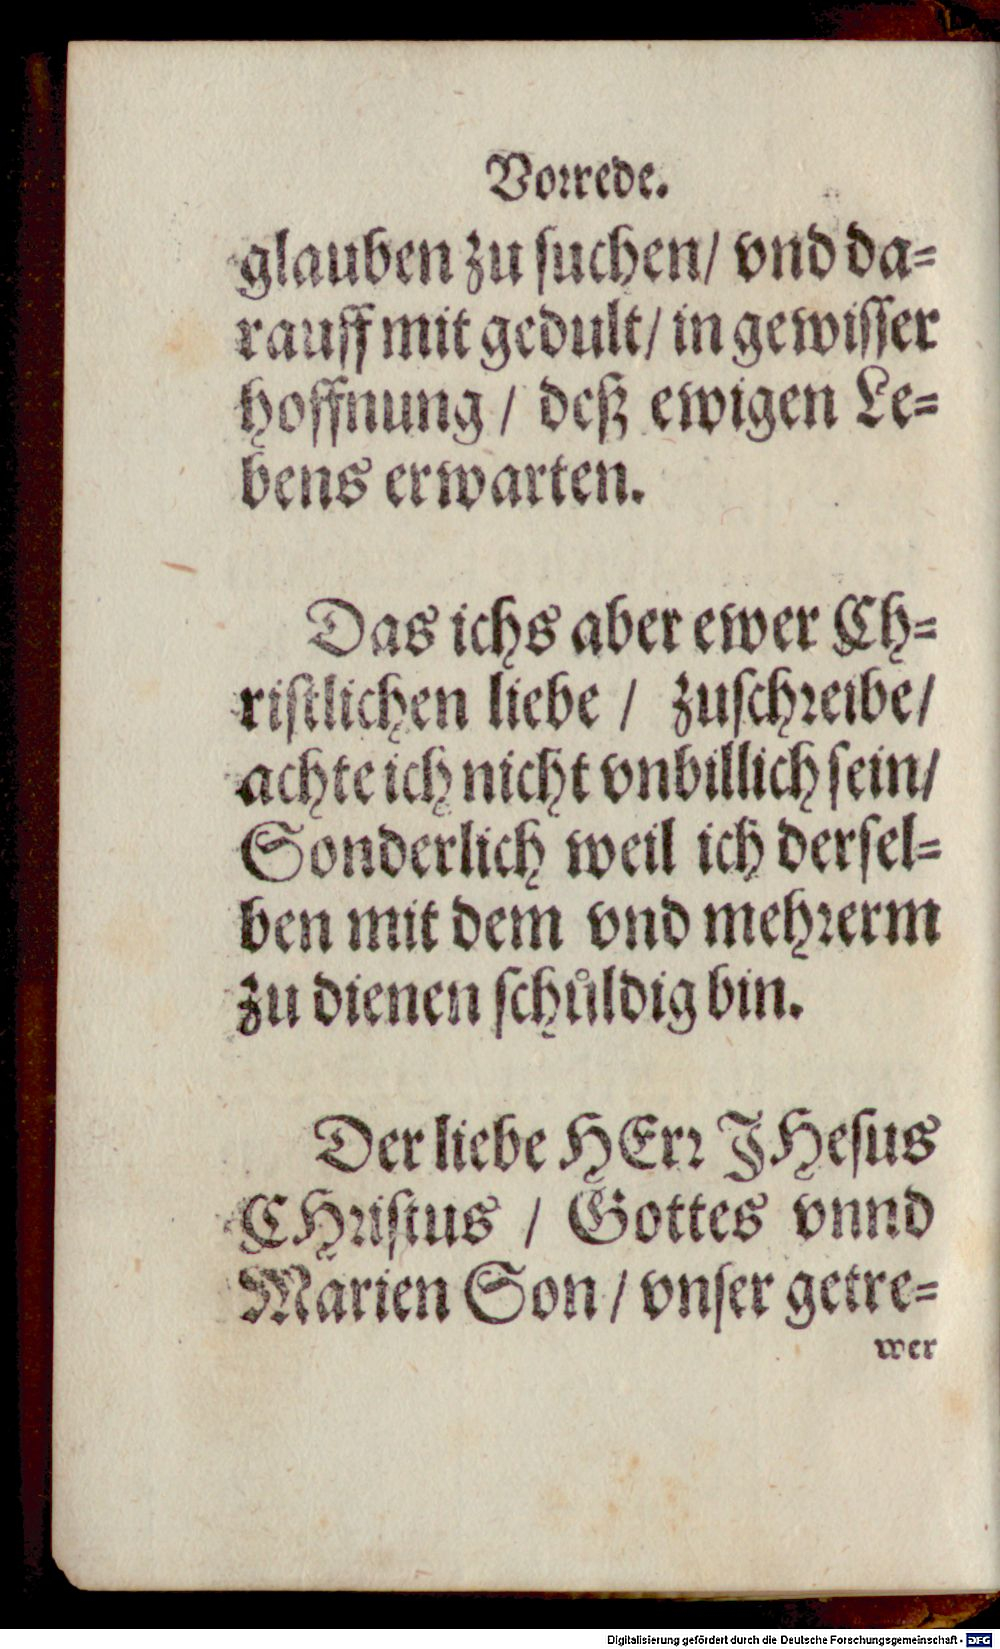 Vorrede.
glauben zu suchen/ vnd da=
rauff mit gedult/ in gewisser
hoffnung / deß ewigen Le=
bens erwarten.
Das ichs aber ewer Ch=
ristlichen liebe / zuschreibe/
achte ich nicht vnbillich sein/
Sonderlich weil ich dersel=
ben mit dem vnd mehrerm
zu dienen schůldig bin.
Der liebe HErr JHesus
CHristus / Gottes vnnd
Marien Son / vnser getre=
wer
Digitalisierung gefördert durch die Deutsche Forschungsgemeinschaft - DFG